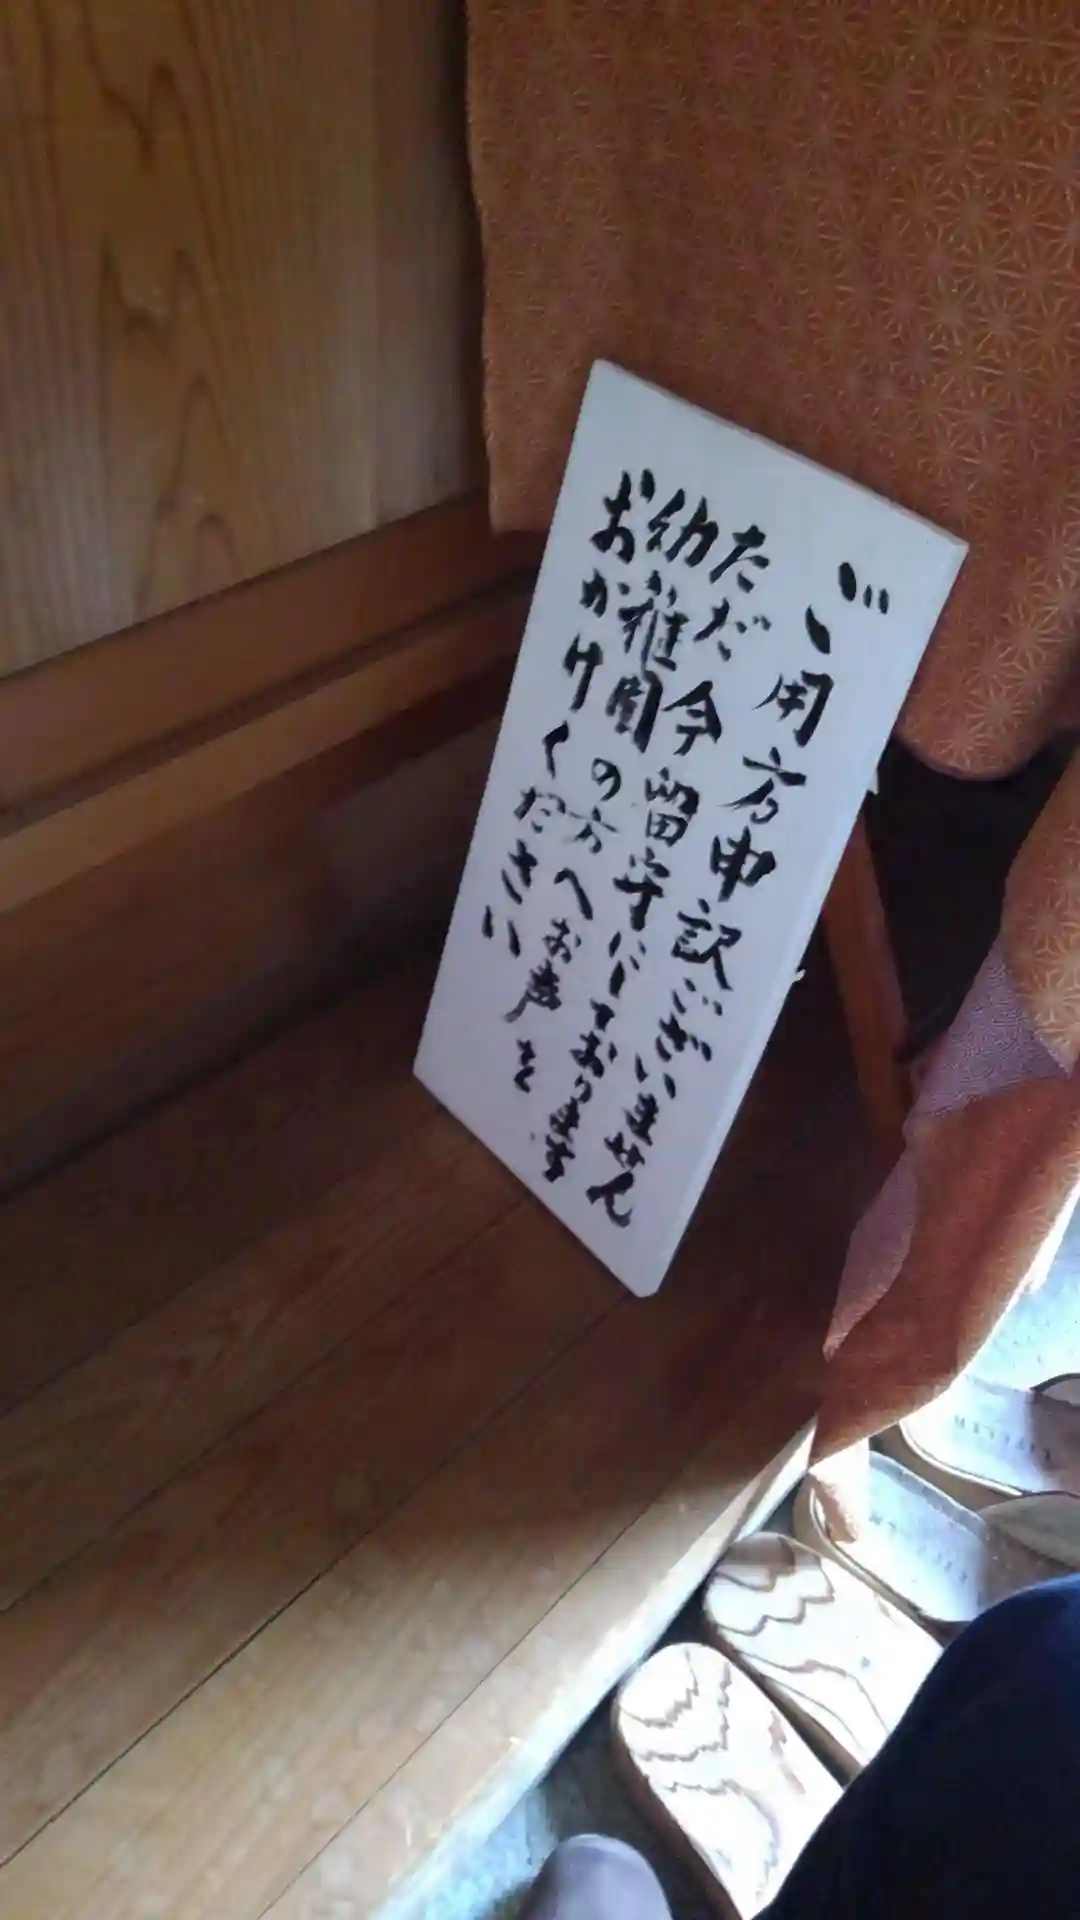 ご用方申訳ございません
ただ今留守にしております
幼稚園の方へお声を
おかけください